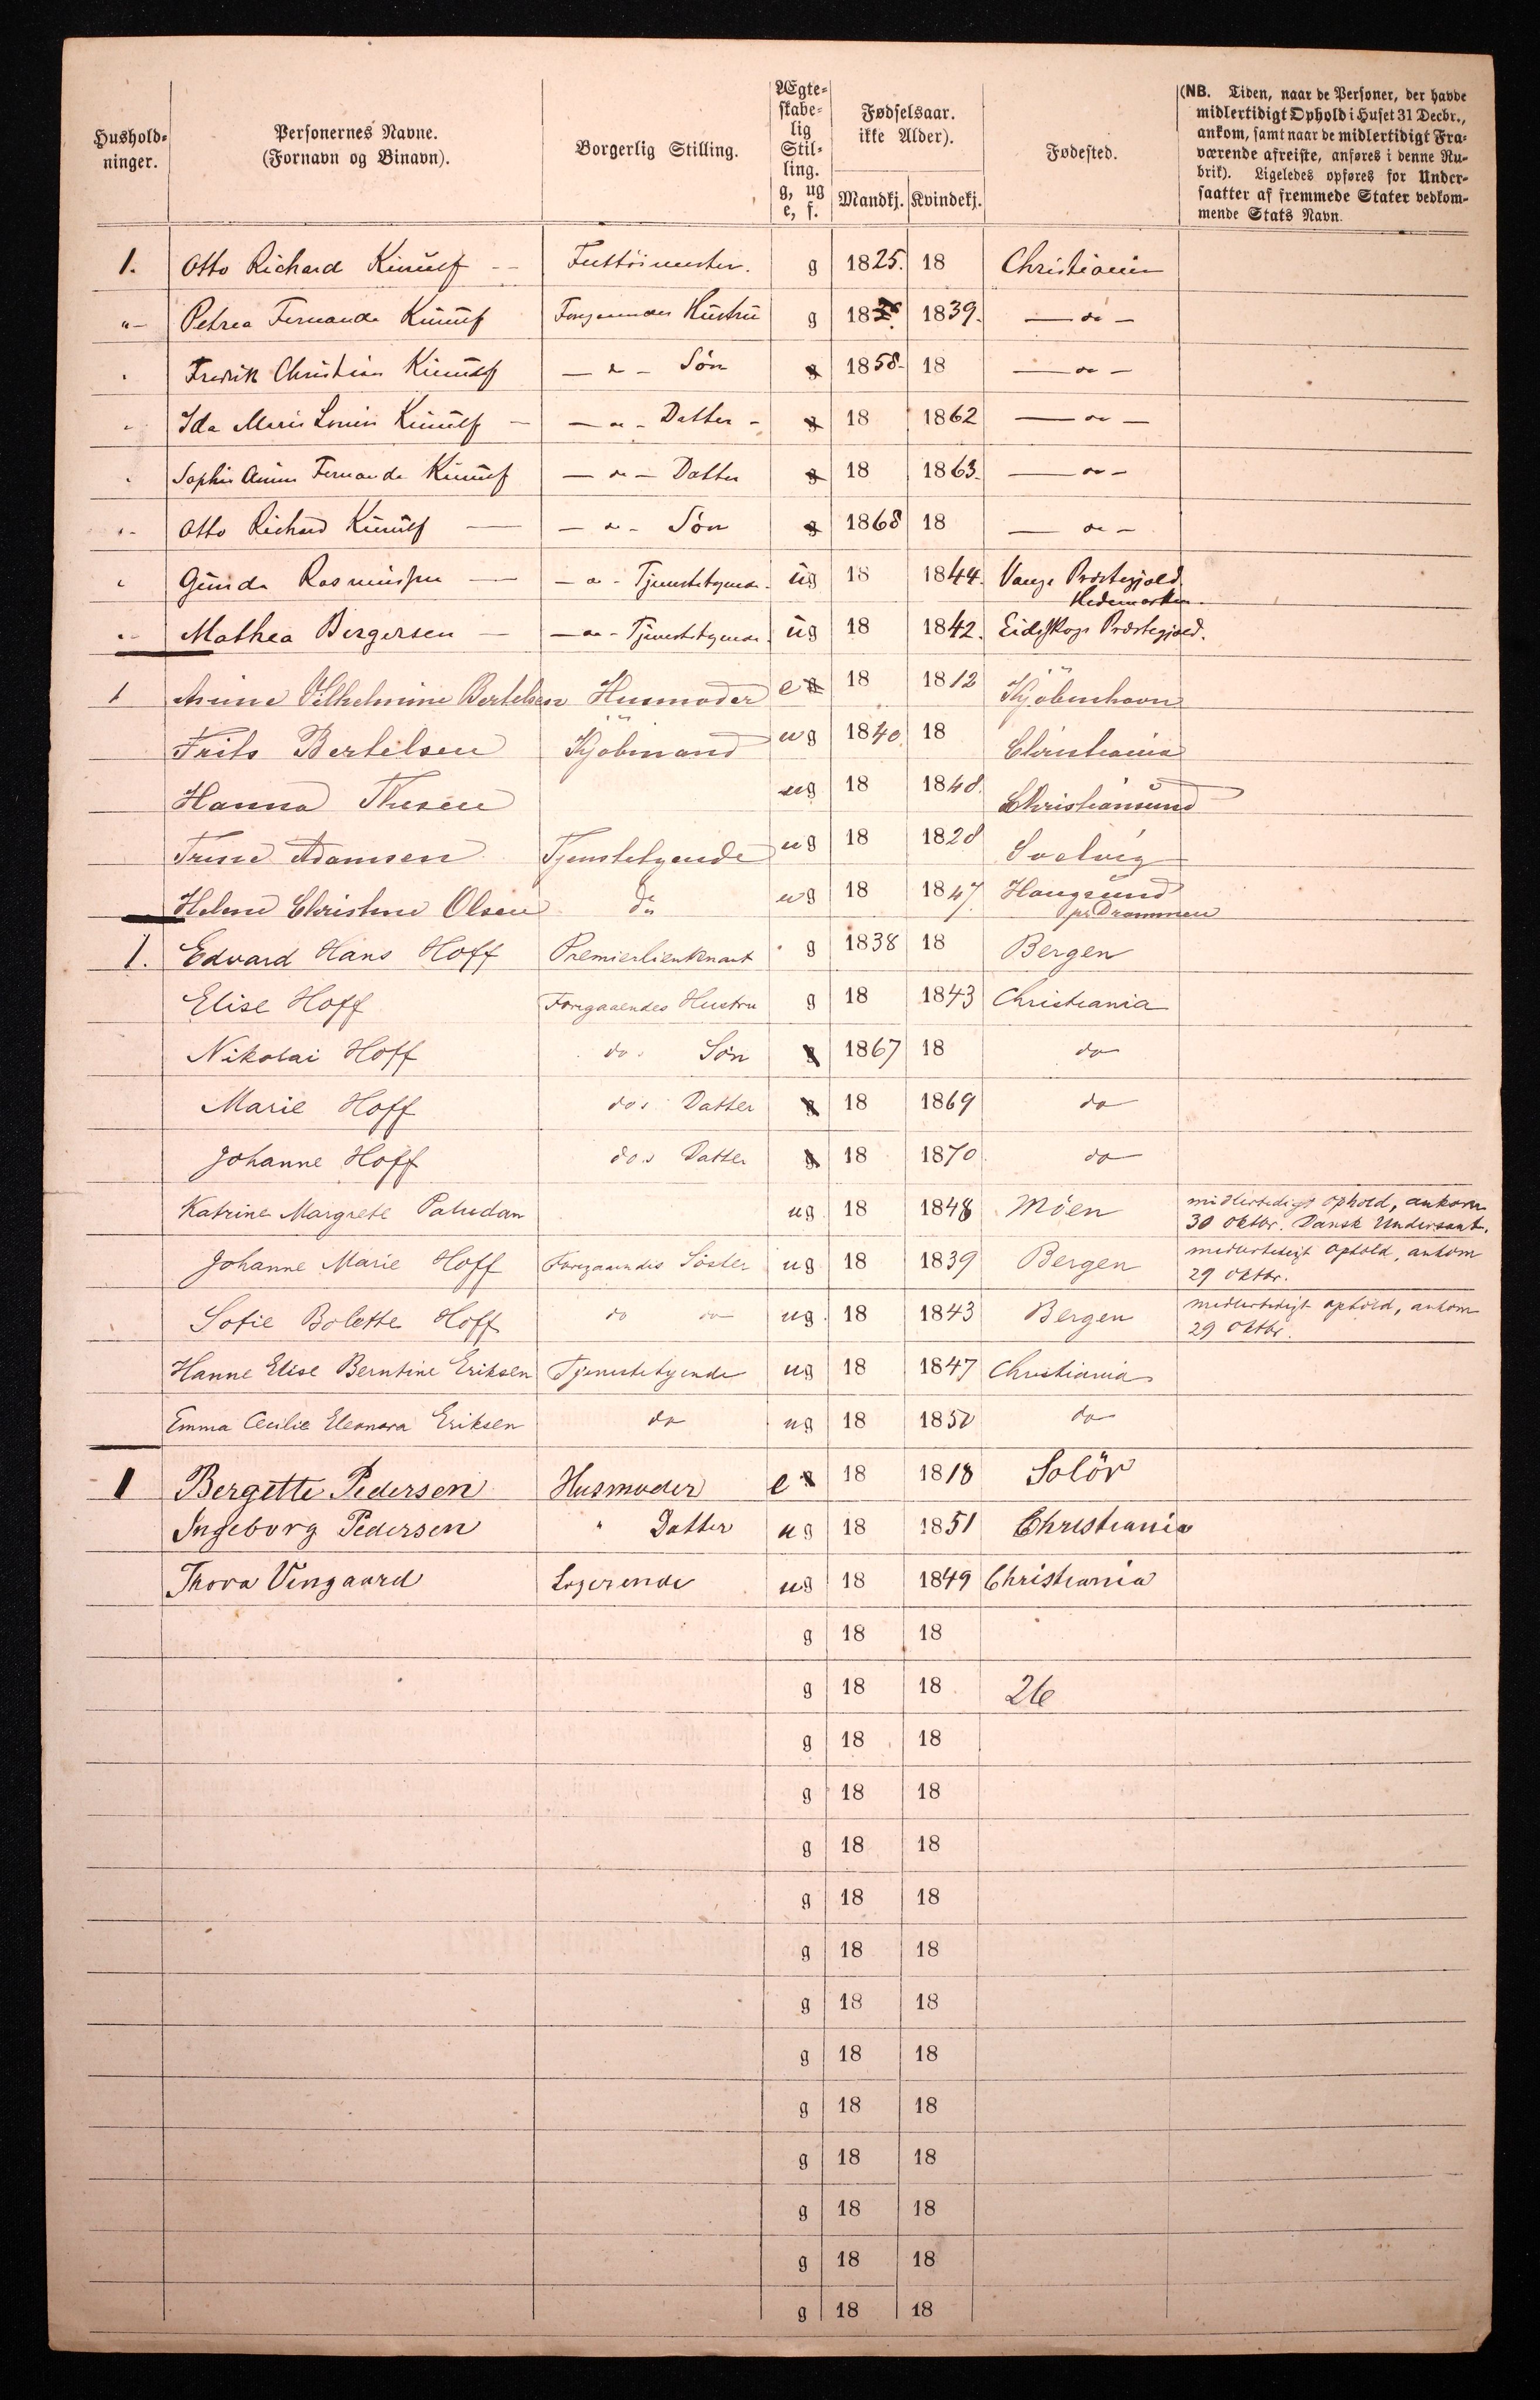 Hushold-
ninger.
Personernes Navne.
(Fornavn og Binavn).
Borgerlig Stilling.
Ægte-
skabe-
lig
Stil-
ling.
g, ug
e, f.
Fødselsaar.
ikke Alder).
Mandkj. Kvindekj.
Fødested.
(NB. Tiden, naar de Personer, der havde
midlertidigt Ophold i Huset 31 Decbr.,
ankom, samt naar de midlertidigt Fra-
værende afreiste, anføres i denne Ru-
brik). Ligeledes opføres for Under-
saatter af fremmede Stater vedkom-
mende Stats Navn.
1. Otto Richard g 1825. 18 Christiania
"- Petrea Fernanda Hustru g 18 1839. — do —
Fredrik Christian — do — Søn 1858- 18 — do —
Ida Marie — do — Datter - 18 1862 — do —
Sophie Fernanda — do — Datter 18 1863. — do —
Otto Richard — do — Søn 1868 18 — do —
Gunda — do - Tjenestetyende. ug 18 1844. Vangs Præstegjeld
Hedemarken.
Mathea Bergersen — do - Tjenestetyende. ug 18 1842. Eidsskogs Præstegjæld.
1 Vilhelmine Bertelsen Husmoder e 18 1812 Kjöbenhavn
Frits Bertelsen Kjöbmand ug 1840. 18 Christiania
Hanna Thesen ug 18 1848. Christiansund
Trine Adamsen Tjenestetyende ug 18 1828 Svelvig
Helene Christine Olsen do ug 18 1847. Hougsund
pr Drammen
1. Edvard Hans Hoff Premierlieutenant g 1838 18 Bergen
Elise Hoff Foregaaendes Hustru g 18 1843 Christiania
Nikolai Hoff do. Søn 1867 18 do
Marie Hoff do. Datter 18 1869 do
Johanne Hoff do. Datter 18 1870. do
Katrine Margrete Paludan ug 18 1848 Möen midlertidigt ophold, ankom
30 oktbr. Dansk Undersaat.
Johanne Marie Hoff Foregaaendes Søster ug 18 1839 Bergen midlertidigt ophold, ankom
29 oktbr.
Sofie Bolette Hoff do do ug. 18 1843 Bergen midlertidigt ophold, ankom
29 oktbr.
Hanne Elise Berntine Eriksen Tjenestetyende ug 18 1847 Christiania
Emma Cecilie Eleonora Eriksen do ug 18 1850 do
1 Bergette Pedersen Husmoder e 18 1818 Solör
Ingeborg Pedersen " Datter ug 18 1851 Christiania
Thora Vengaard Logerende ug 18 1849 Christiania
g 18 18
g 18 18 26
g 18 18
g 18 18
g 18 18
g 18 18
g 18 18
g 18 18
g 18 18
g 18 18
g 18 18
g 18 18
g 18 18
g 18 18